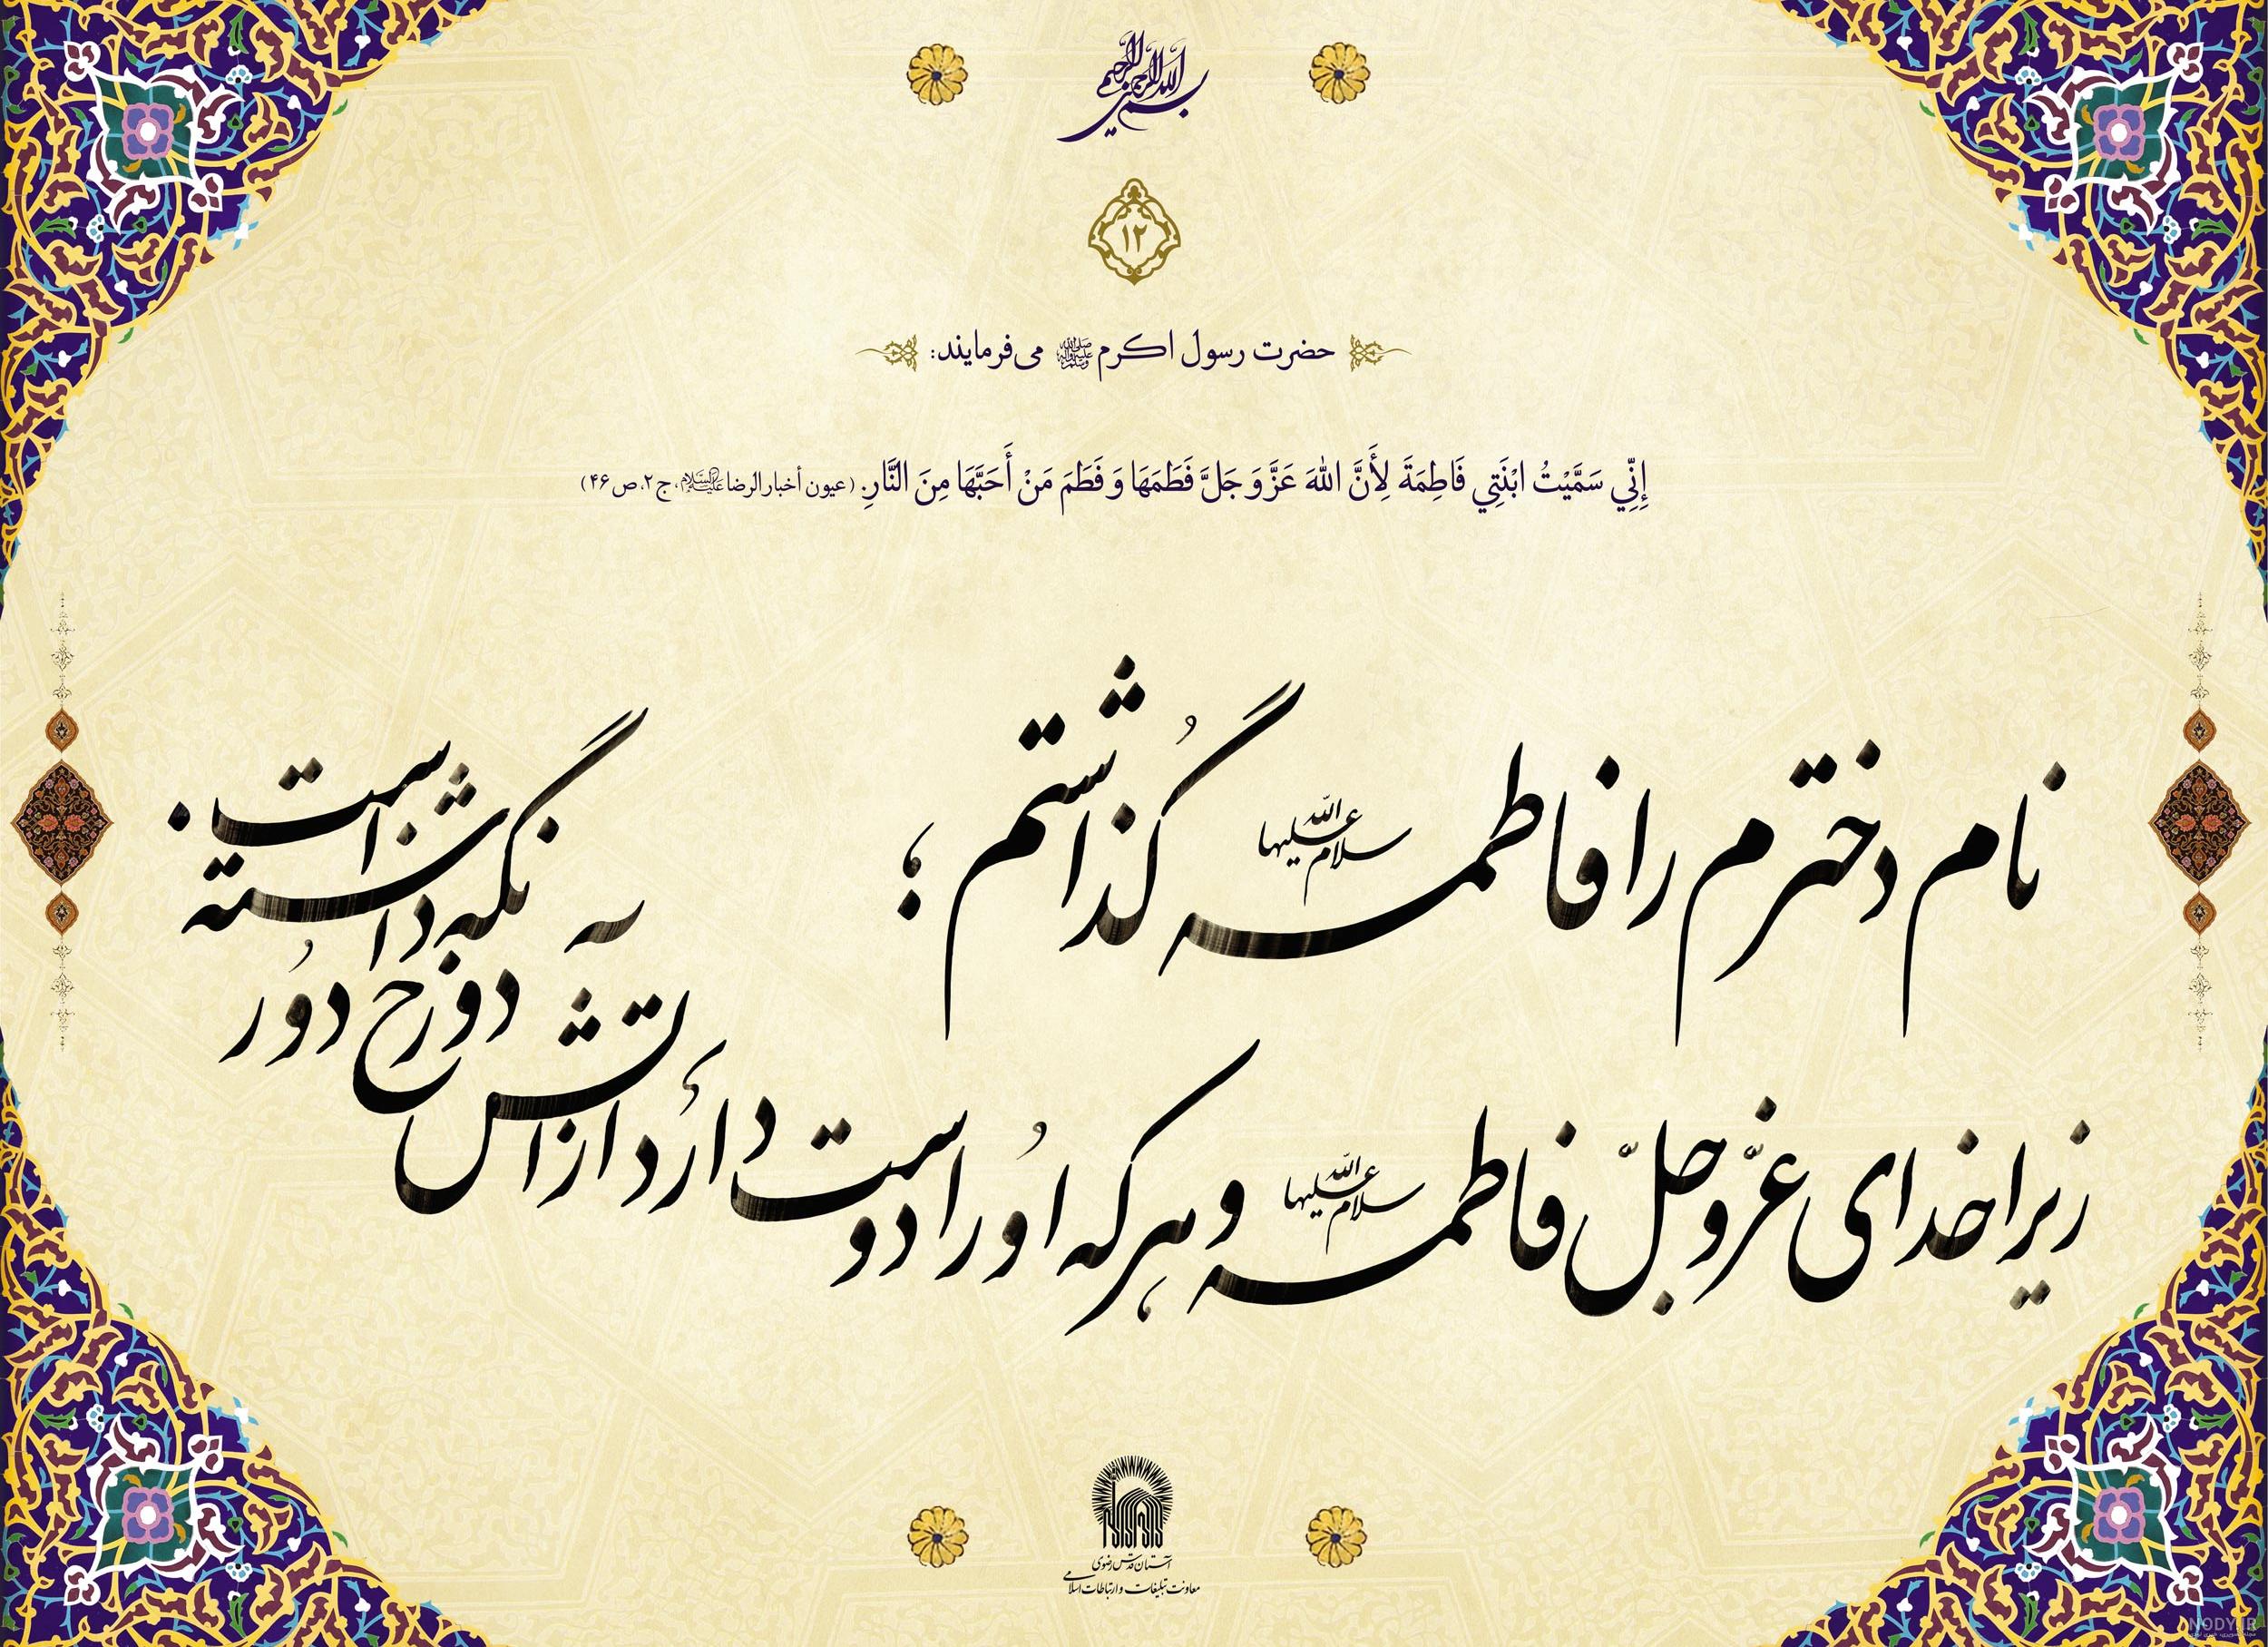 بسم الله الرحمن الرحیم
۱۲
حضرت رسول اکرم ﷺ می‌فرمایند:
إِنِّي سَمَّيْتُ ابْنَتِي فَاطِمَةَ لِأَنَّ اللهَ عَزَّ وَ جَلَّ فَطَمَهَا وَ فَطَمَ مَنْ أَحَبَّهَا مِنَ النَّارِ. (عیون أخبار الرضا علیه‌السلام، ج۲، ص۴۶)
نام دخترم را فاطمه سلام الله علیها گُذاشتم؛
زیرا خدای عزّ و جلّ فاطمه سلام الله علیها و هر که اُو را دوست دارد از آتش دوزخ دُور نگه داشته است.
آستان قدس رضوی
معاونت تبلیغات و ارتباطات اسلامی
NODY.IR